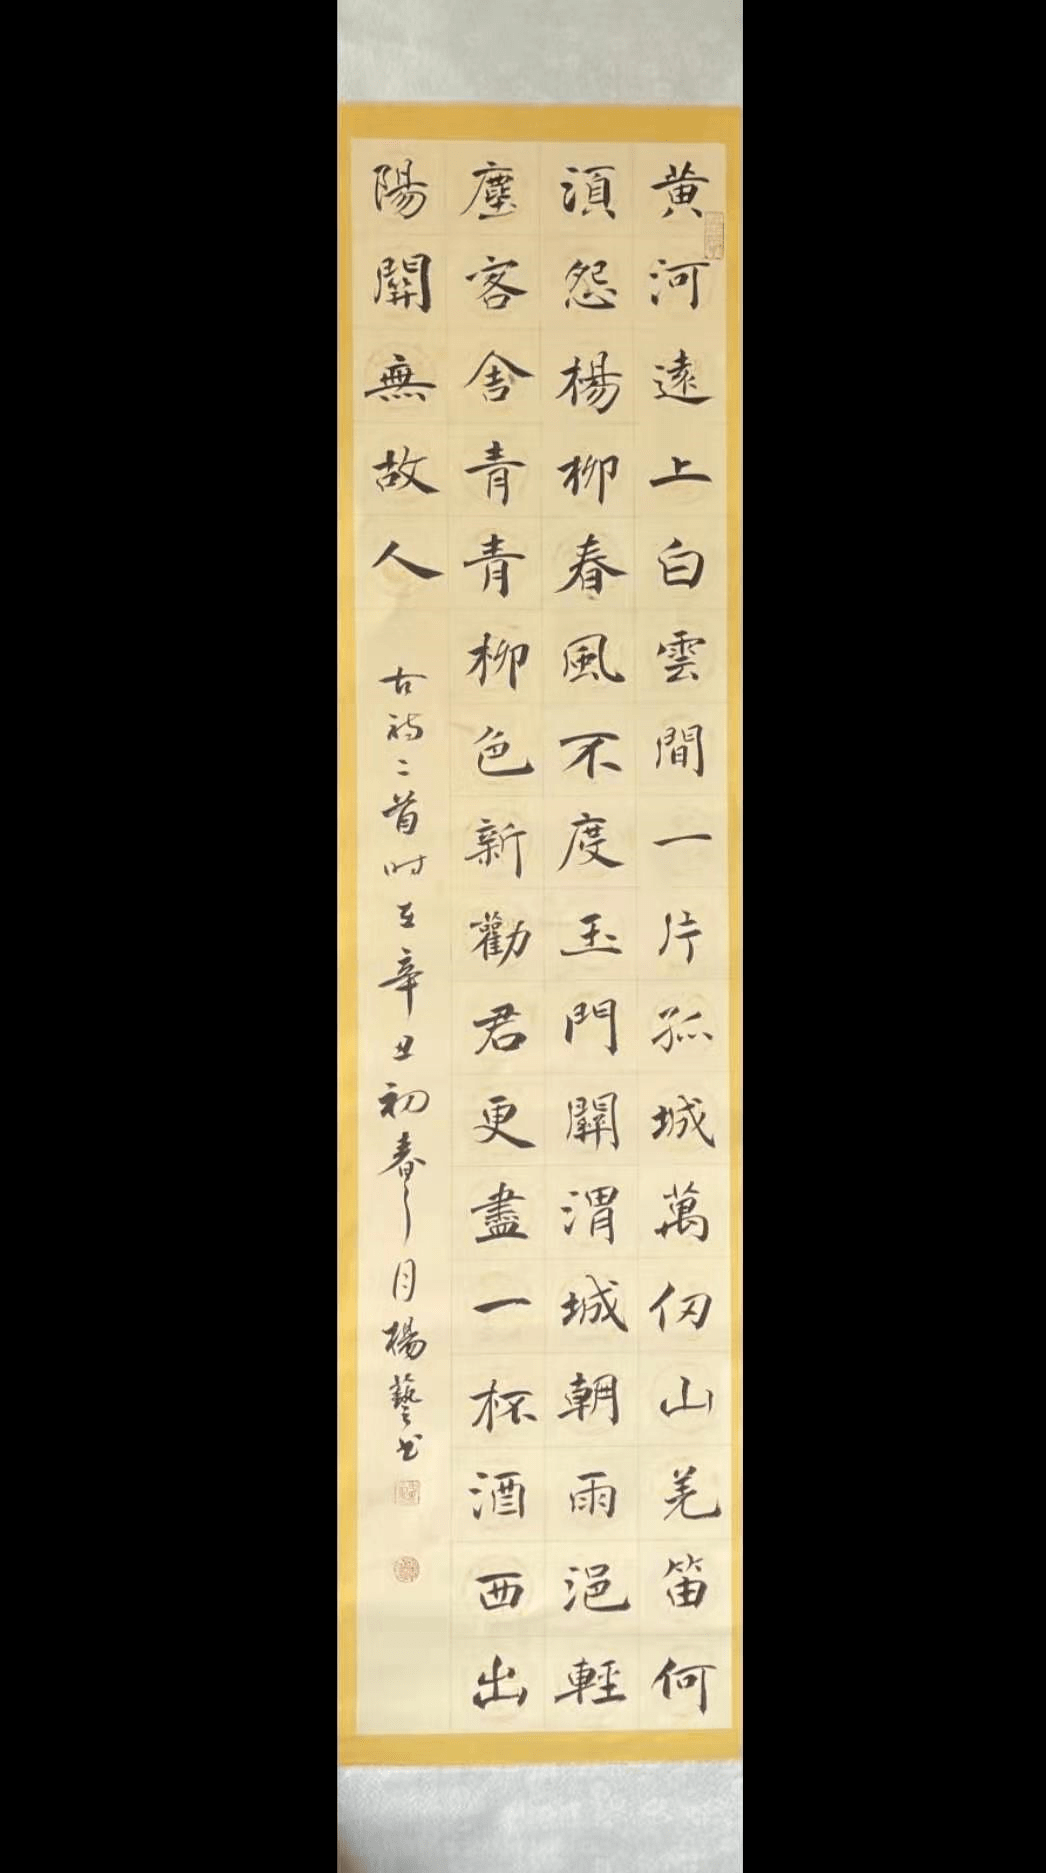 黄河遠上白雲間一片孤城萬仞山羌笛何
湏怨楊柳春風不度玉門關渭城朝雨浥輕
塵客舍青青柳色新勸君更盡一杯酒西出
陽關無故人
古詩二首時在辛丑初春之月楊藝書